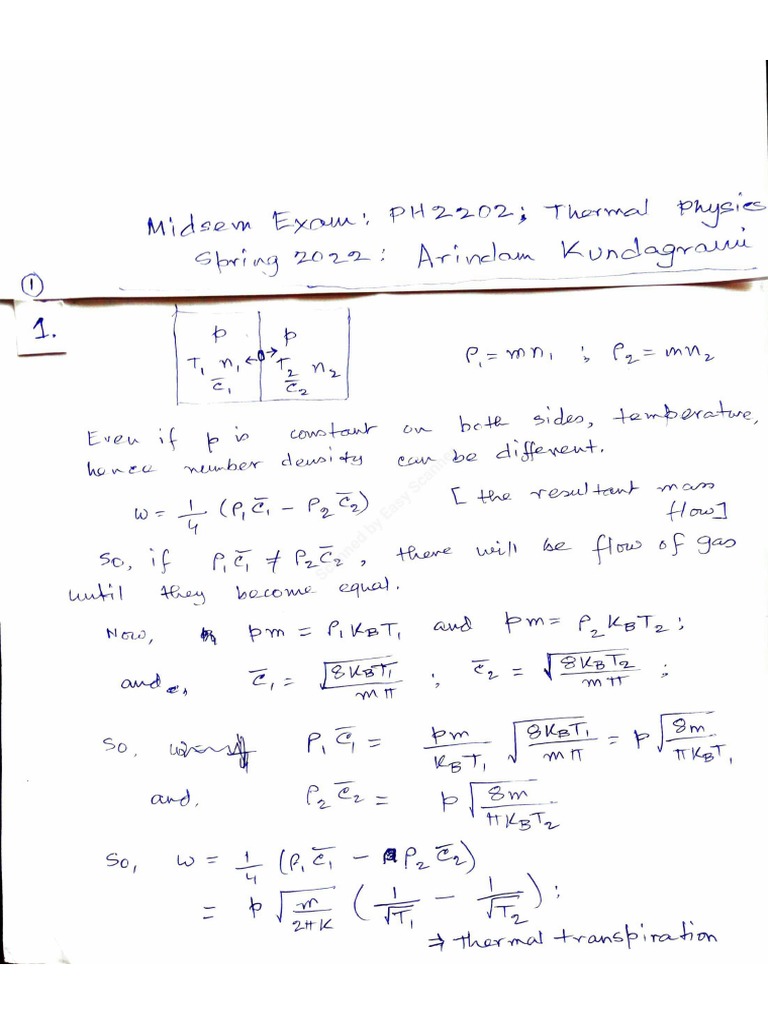 Midsem Exam: PH2202; Thermal Physics
Spring 2022: Arindam Kundagrami
①
1.
p p
T₁ n₁ T₂ n₂
c̄₁ c̄₂
ρ₁ = mn₁ ; ρ₂ = mn₂
Even if p is constant on both sides, temperature,
hence number density can be different.
w = 1/4 (ρ₁c̄₁ - ρ₂c̄₂) [the resultant mass
flow]
So, if ρ₁c̄₁ ≠ ρ₂c̄₂, there will be flow of gas
until they become equal.
Now, pm = ρ₁K_BT₁ and pm = ρ₂K_BT₂ ;
and, c̄₁ = √(8K_BT₁/mπ) ; c̄₂ = √(8K_BT₂/mπ) ;
So, ρ₁c̄₁ = pm/K_BT₁ √(8K_BT₁/mπ) = p√(8m/πK_BT₁)
and, ρ₂c̄₂ = p√(8m/πK_BT₂)
So, w = 1/4 (ρ₁c̄₁ - ρ₂c̄₂)
= p√(m/2πK) (1/√T₁ - 1/√T₂) ;
⇒ Thermal transpiration
Scanned by Easy Scanner